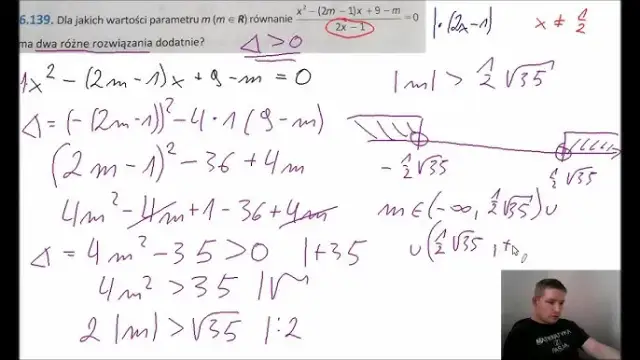 6.139. Dla jakich wartości parametru m (m ∈ R) równanie (x² – (2m – 1)x + 9 – m)/(2x – 1) = 0
ma dwa różne rozwiązania dodatnie?
Δ > 0
| · (2x-1)
x ≠ 1/2
1x² - (2m-1)x + 9 - m = 0
Δ = (-(2m-1))² - 4·1(9-m)
(2m-1)² - 36 + 4m
4m² - 4m + 1 - 36 + 4m
Δ = 4m² - 35 > 0 |+35
4m² > 35 |√
2|m| > √35 |:2
|m| > 1/2 √35
-1/2 √35
1/2 √35
m ∈ (-∞, 1/2 √35) ∪
∪ (1/2 √35, +